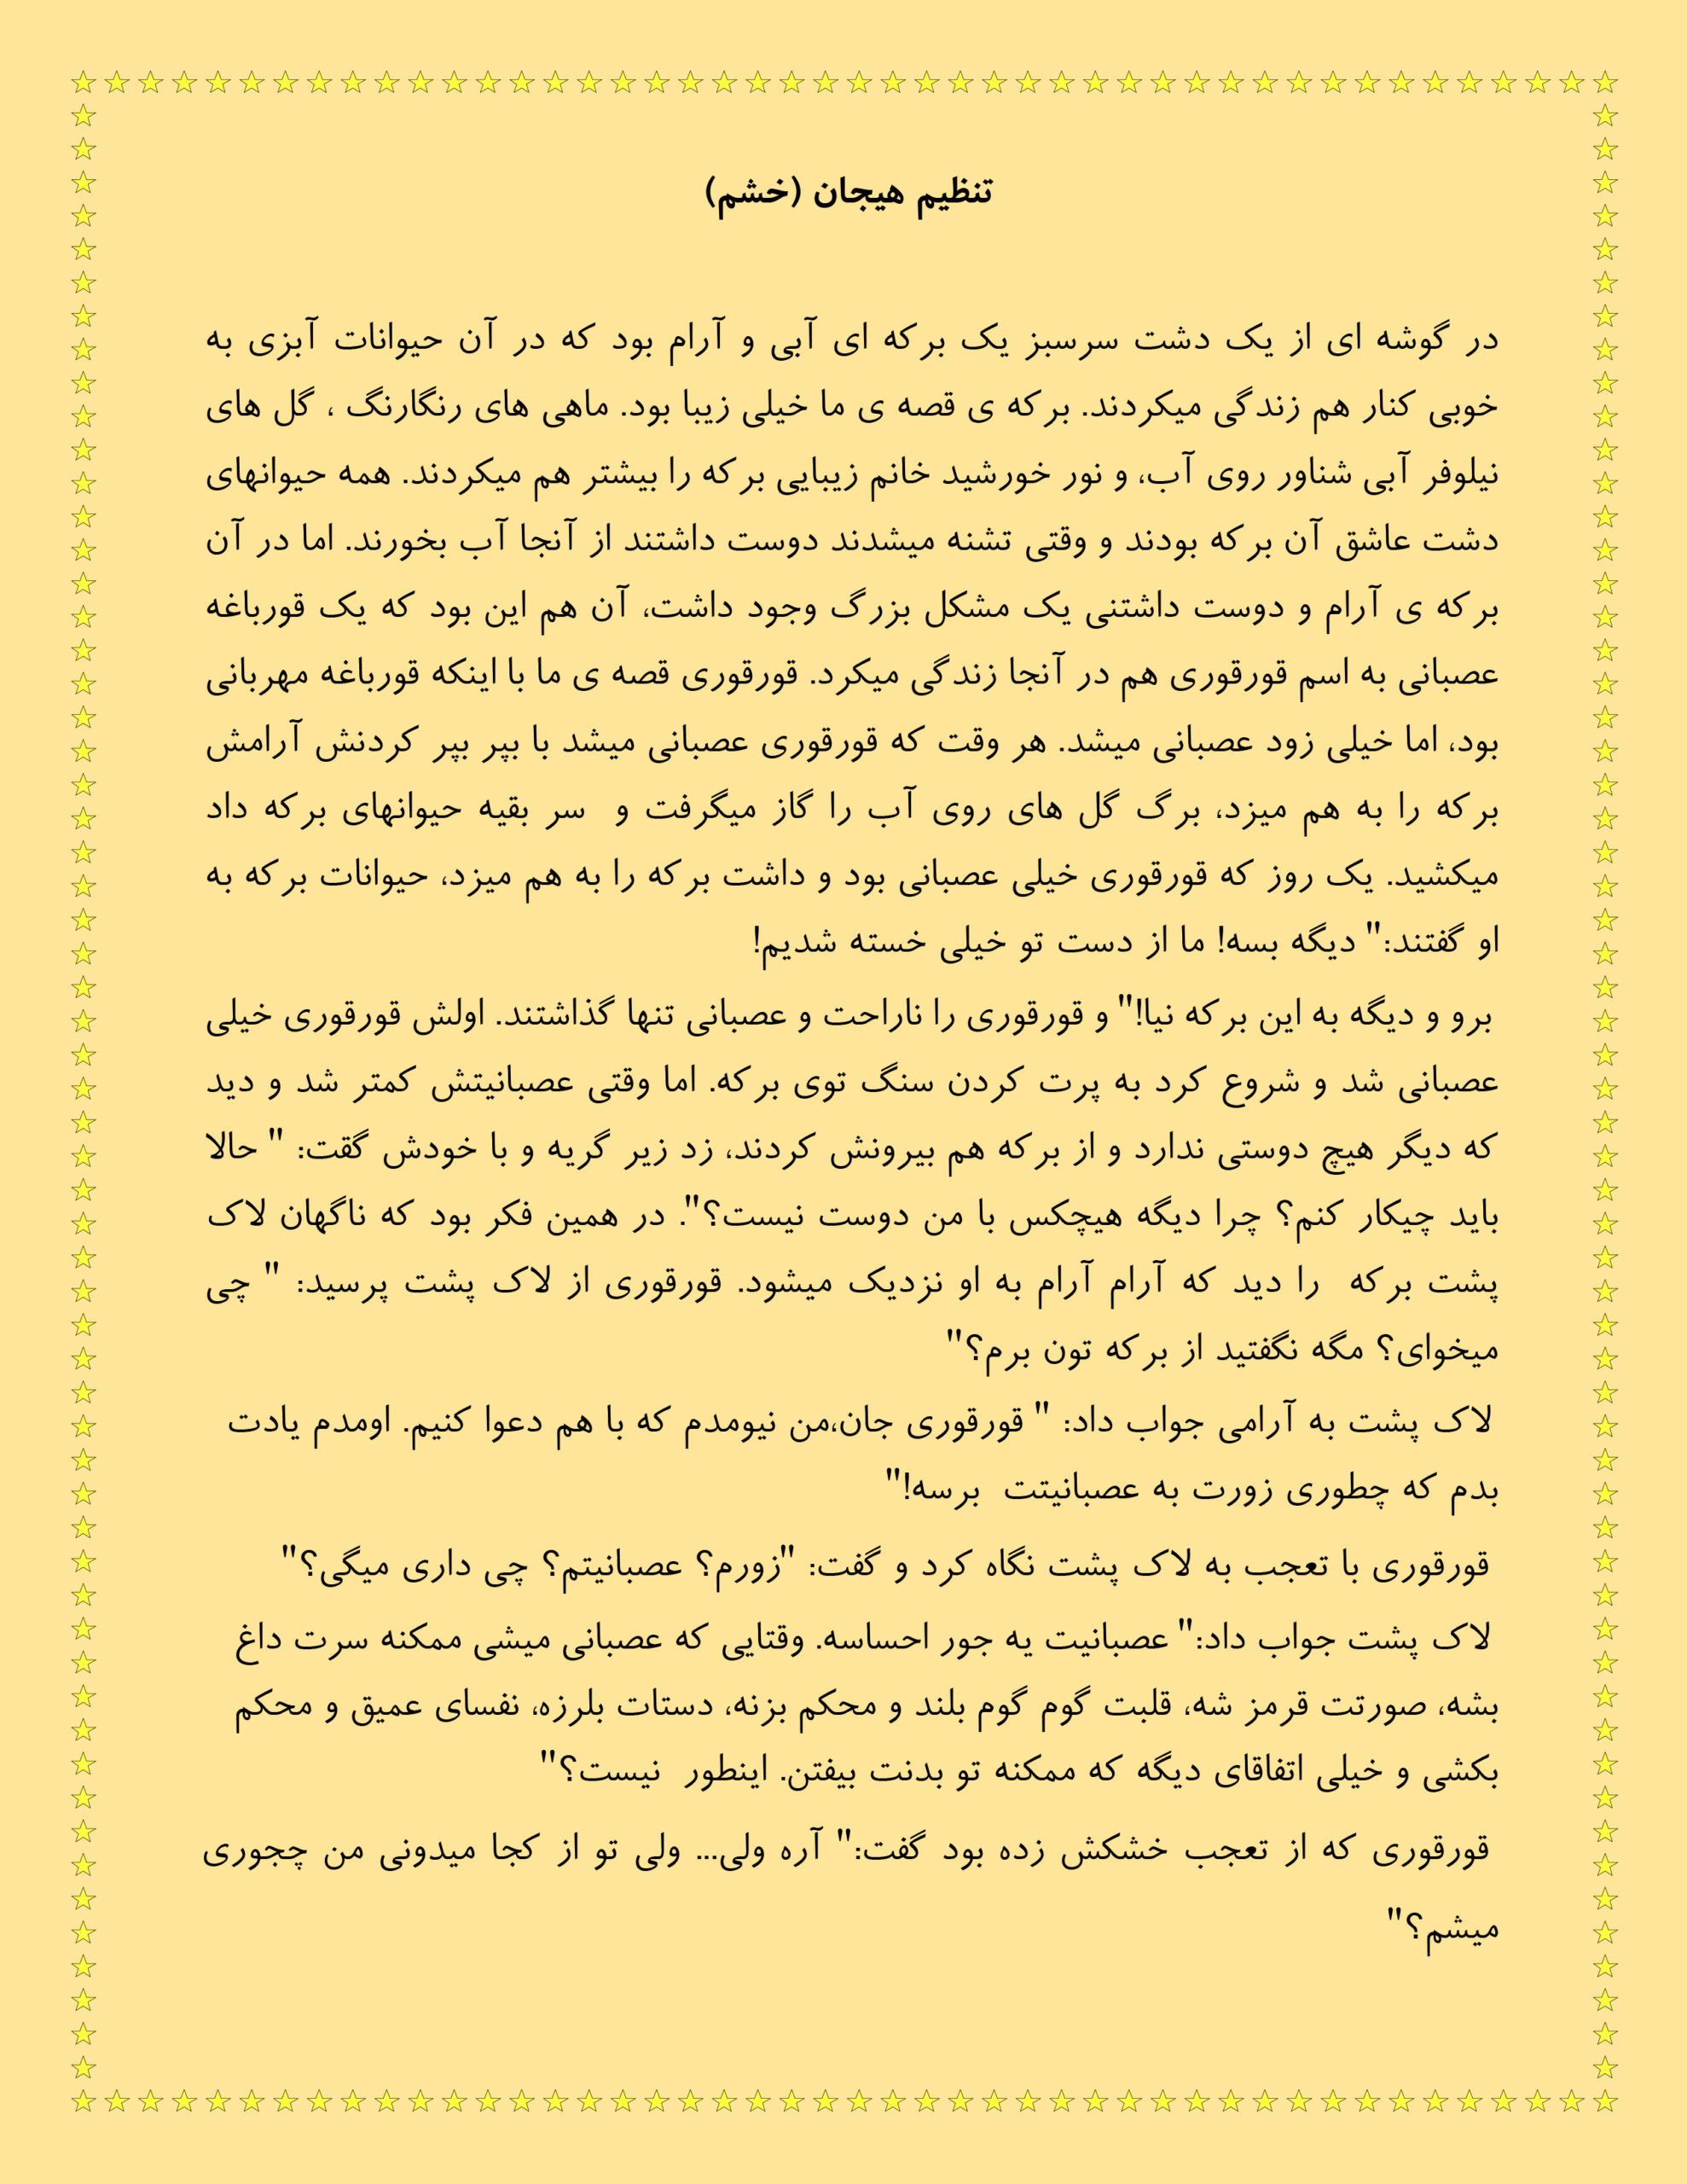 تنظیم هیجان (خشم)
در گوشه ای از یک دشت سرسبز یک برکه ای آبی و آرام بود که در آن حیوانات آبزی به
خوبی کنار هم زندگی میکردند. برکه ی قصه ی ما خیلی زیبا بود. ماهی های رنگارنگ ، گل های
نیلوفر آبی شناور روی آب، و نور خورشید خانم زیبایی برکه را بیشتر هم میکردند. همه حیوانهای
دشت عاشق آن برکه بودند و وقتی تشنه میشدند دوست داشتند از آنجا آب بخورند. اما در آن
برکه ی آرام و دوست داشتنی یک مشکل بزرگ وجود داشت، آن هم این بود که یک قورباغه
عصبانی به اسم قورقوری هم در آنجا زندگی میکرد. قورقوری قصه ی ما با اینکه قورباغه مهربانی
بود، اما خیلی زود عصبانی میشد. هر وقت که قورقوری عصبانی میشد با بپر بپر کردنش آرامش
برکه را به هم میزد، برگ گل های روی آب را گاز میگرفت و سر بقیه حیوانهای برکه داد
میکشید. یک روز که قورقوری خیلی عصبانی بود و داشت برکه را به هم میزد، حیوانات برکه به
او گفتند:" دیگه بسه! ما از دست تو خیلی خسته شدیم!
برو و دیگه به این برکه نیا!" و قورقوری را ناراحت و عصبانی تنها گذاشتند. اولش قورقوری خیلی
عصبانی شد و شروع کرد به پرت کردن سنگ توی برکه. اما وقتی عصبانیتش کمتر شد و دید
که دیگر هیچ دوستی ندارد و از برکه هم بیرونش کردند، زد زیر گریه و با خودش گقت: " حالا
باید چیکار کنم؟ چرا دیگه هیچکس با من دوست نیست؟". در همین فکر بود که ناگهان لاک
پشت برکه را دید که آرام آرام به او نزدیک میشود. قورقوری از لاک پشت پرسید: " چی
میخوای؟ مگه نگفتید از برکه تون برم؟"
لاک پشت به آرامی جواب داد: " قورقوری جان،من نیومدم که با هم دعوا کنیم. اومدم یادت
بدم که چطوری زورت به عصبانیتت برسه!"
قورقوری با تعجب به لاک پشت نگاه کرد و گفت: "زورم؟ عصبانیتم؟ چی داری میگی؟"
لاک پشت جواب داد:" عصبانیت یه جور احساسه. وقتایی که عصبانی میشی ممکنه سرت داغ
بشه، صورتت قرمز شه، قلبت گوم گوم بلند و محکم بزنه، دستات بلرزه، نفسای عمیق و محکم
بکشی و خیلی اتفاقای دیگه که ممکنه تو بدنت بیفتن. اینطور نیست؟"
قورقوری که از تعجب خشکش زده بود گفت:" آره ولی... ولی تو از کجا میدونی من چجوری
میشم؟"